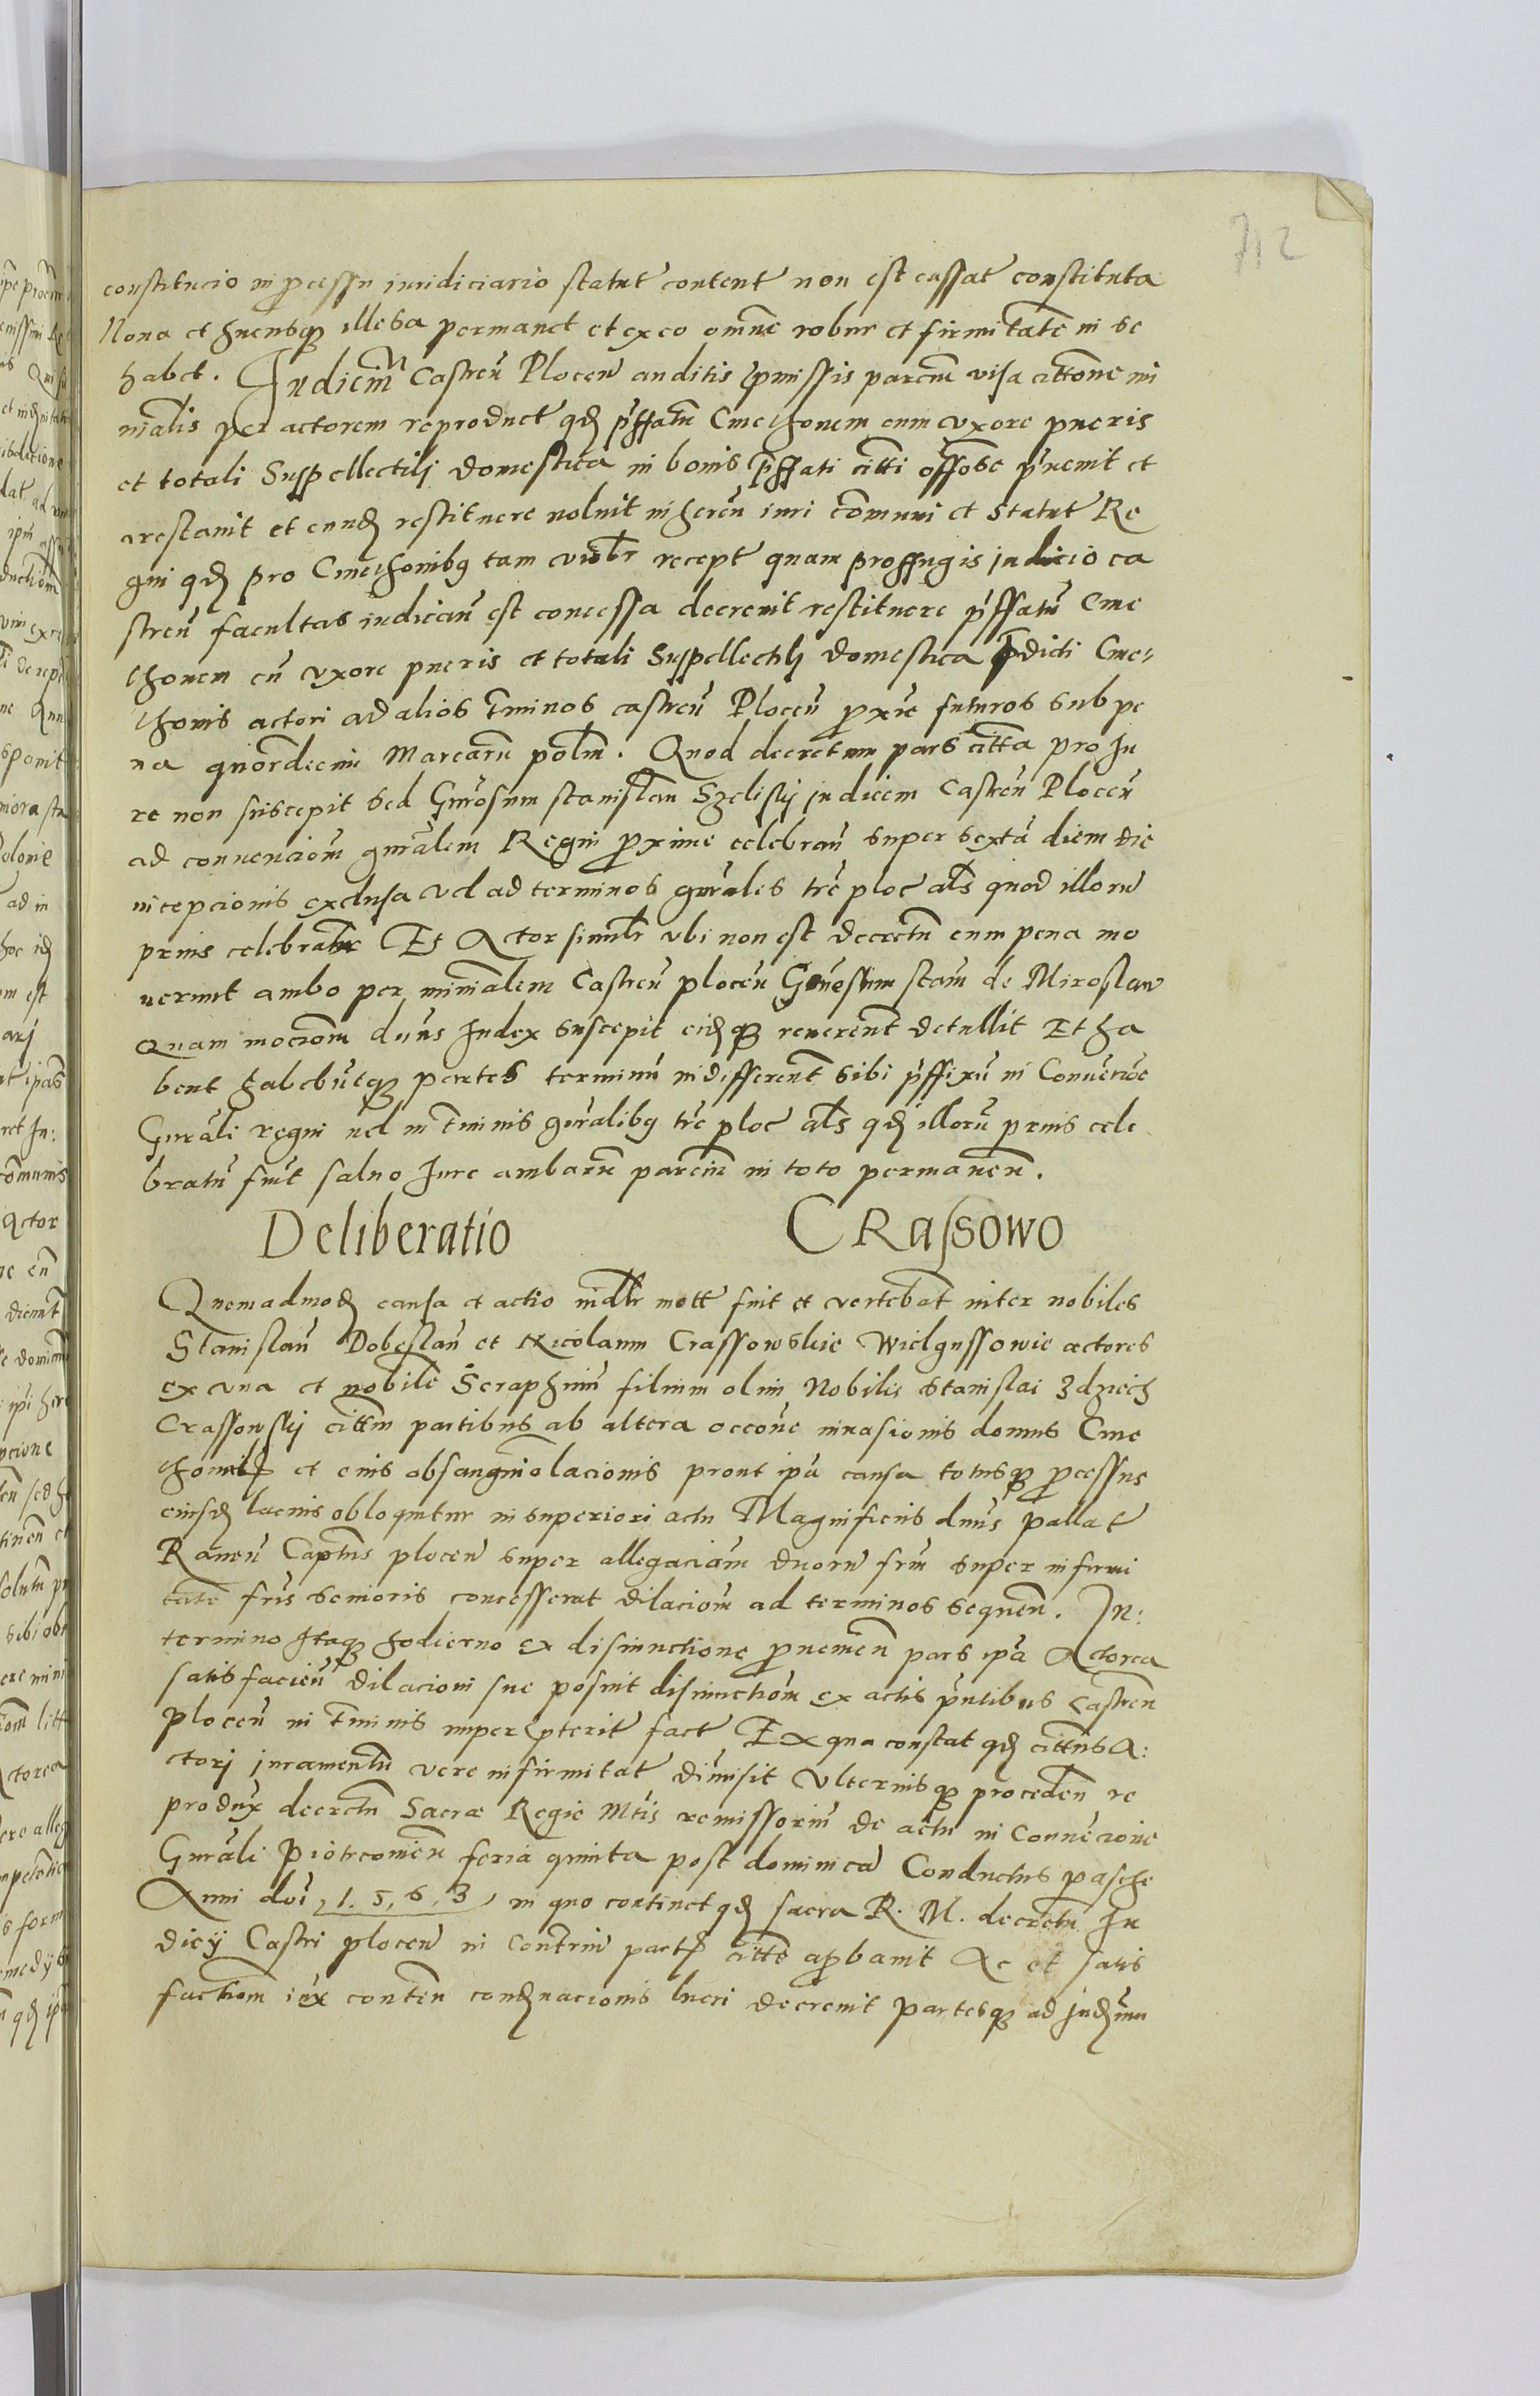 712
constitucio in processu iuridiciario statut content non est cassat constituta
Nona et huensque illesa permanet et ex eo omne robur et firmitate in se
habet. Judiciu Castren Plocen auditis premissis parcium visa cittone mi
nialis per actorem reproduct qd prffatu Cmethonem cum uxore pueris
et totali Suppellectilj domestica in bonis prffati citti offose prnenit et
arestauit et eund restituere noluit inheren iuri comuni et statut Re
gni qd pro Cmethonibg tam violr recept quam proffugis judicio ca
stren facultas iudican est concessa decreuit restituere prffatu Cme
thonem cu uxore pueris et totali Suppellectilj domestica predicti Cme-
thonis actori ad alios tminos castren Plocen proxie futuros sub pe
na quordecim Marcaru polm. Quod decretum pars citta pro Ju
re non suscepit sed Gnrosum stanislau Szeliskj judicem Castren Plocen
ad conuenciom gnralem Regni proxime celebran super sexta diem die
incepcionis exclusa vel ad terminos gnrales tre ploc als quod illoru
prius celebratur Et Actor similr ubi non est decretu cum pena mo
uerunt ambo per minialem Castren plocen Genesium stam de Miroslaw
Quam mociom dnus Judex suscepit eidque reuerent detullit Et ha
bent habebutque partes terminu indifferent sibi prffixu in Conuencioe
Gnrali regni uel in tminis gnralibg tre ploc als qd illoru prius cele
bratu fuit saluo Jure ambaru parcium in toto permanen.
Deliberatio CRassowo
Quemadmod causa et actio indlr mott fuit et vertebat inter nobiles
Stanislau Dobeslau et Nicolaum Crassowskie Wielgussowie actores
ex una et nobile Seraphinu filium olim Nobilis Stanislai Zdziech
Crassowskj cittm partibus ab altera occone inuasionis domus Cme
thonils et eius obsanguiolacionis prout ipa causa totusque processus
eiusd lacius obloquitur in superiori actu Magnificus dnus pallat
Rauen Captnus plocen super allegaciam duoru frm super infirmi
tate fris senioris concesserat dilaciom ad terminos sequen. In:
termino Itaque hodierno ex disiunctione prouenien pars ipa Actorea
satisfacien dilacioni sue posuit disiunctiom ex actis prntibus Castren
plocen in tminis nuper preterit fact Ex qua constat qd cittus A:
ctorj juramentu vere infirmitat dimisit Ulteriusque proceden re
produx decretu Sacrae Regie Mtis remissoriu de actu in Conuecione
Gnrali Piotrcouien feria quinta post dominica Conductus pasche
Anni doi 1.5.6.3 in quo continet qd sacra R. M. decretu Ju
dicij Castri plocen in contriu parts citte aprobauit Ac et satis
factiom iux conten condnacionis lucri decreuit partesque ad jud